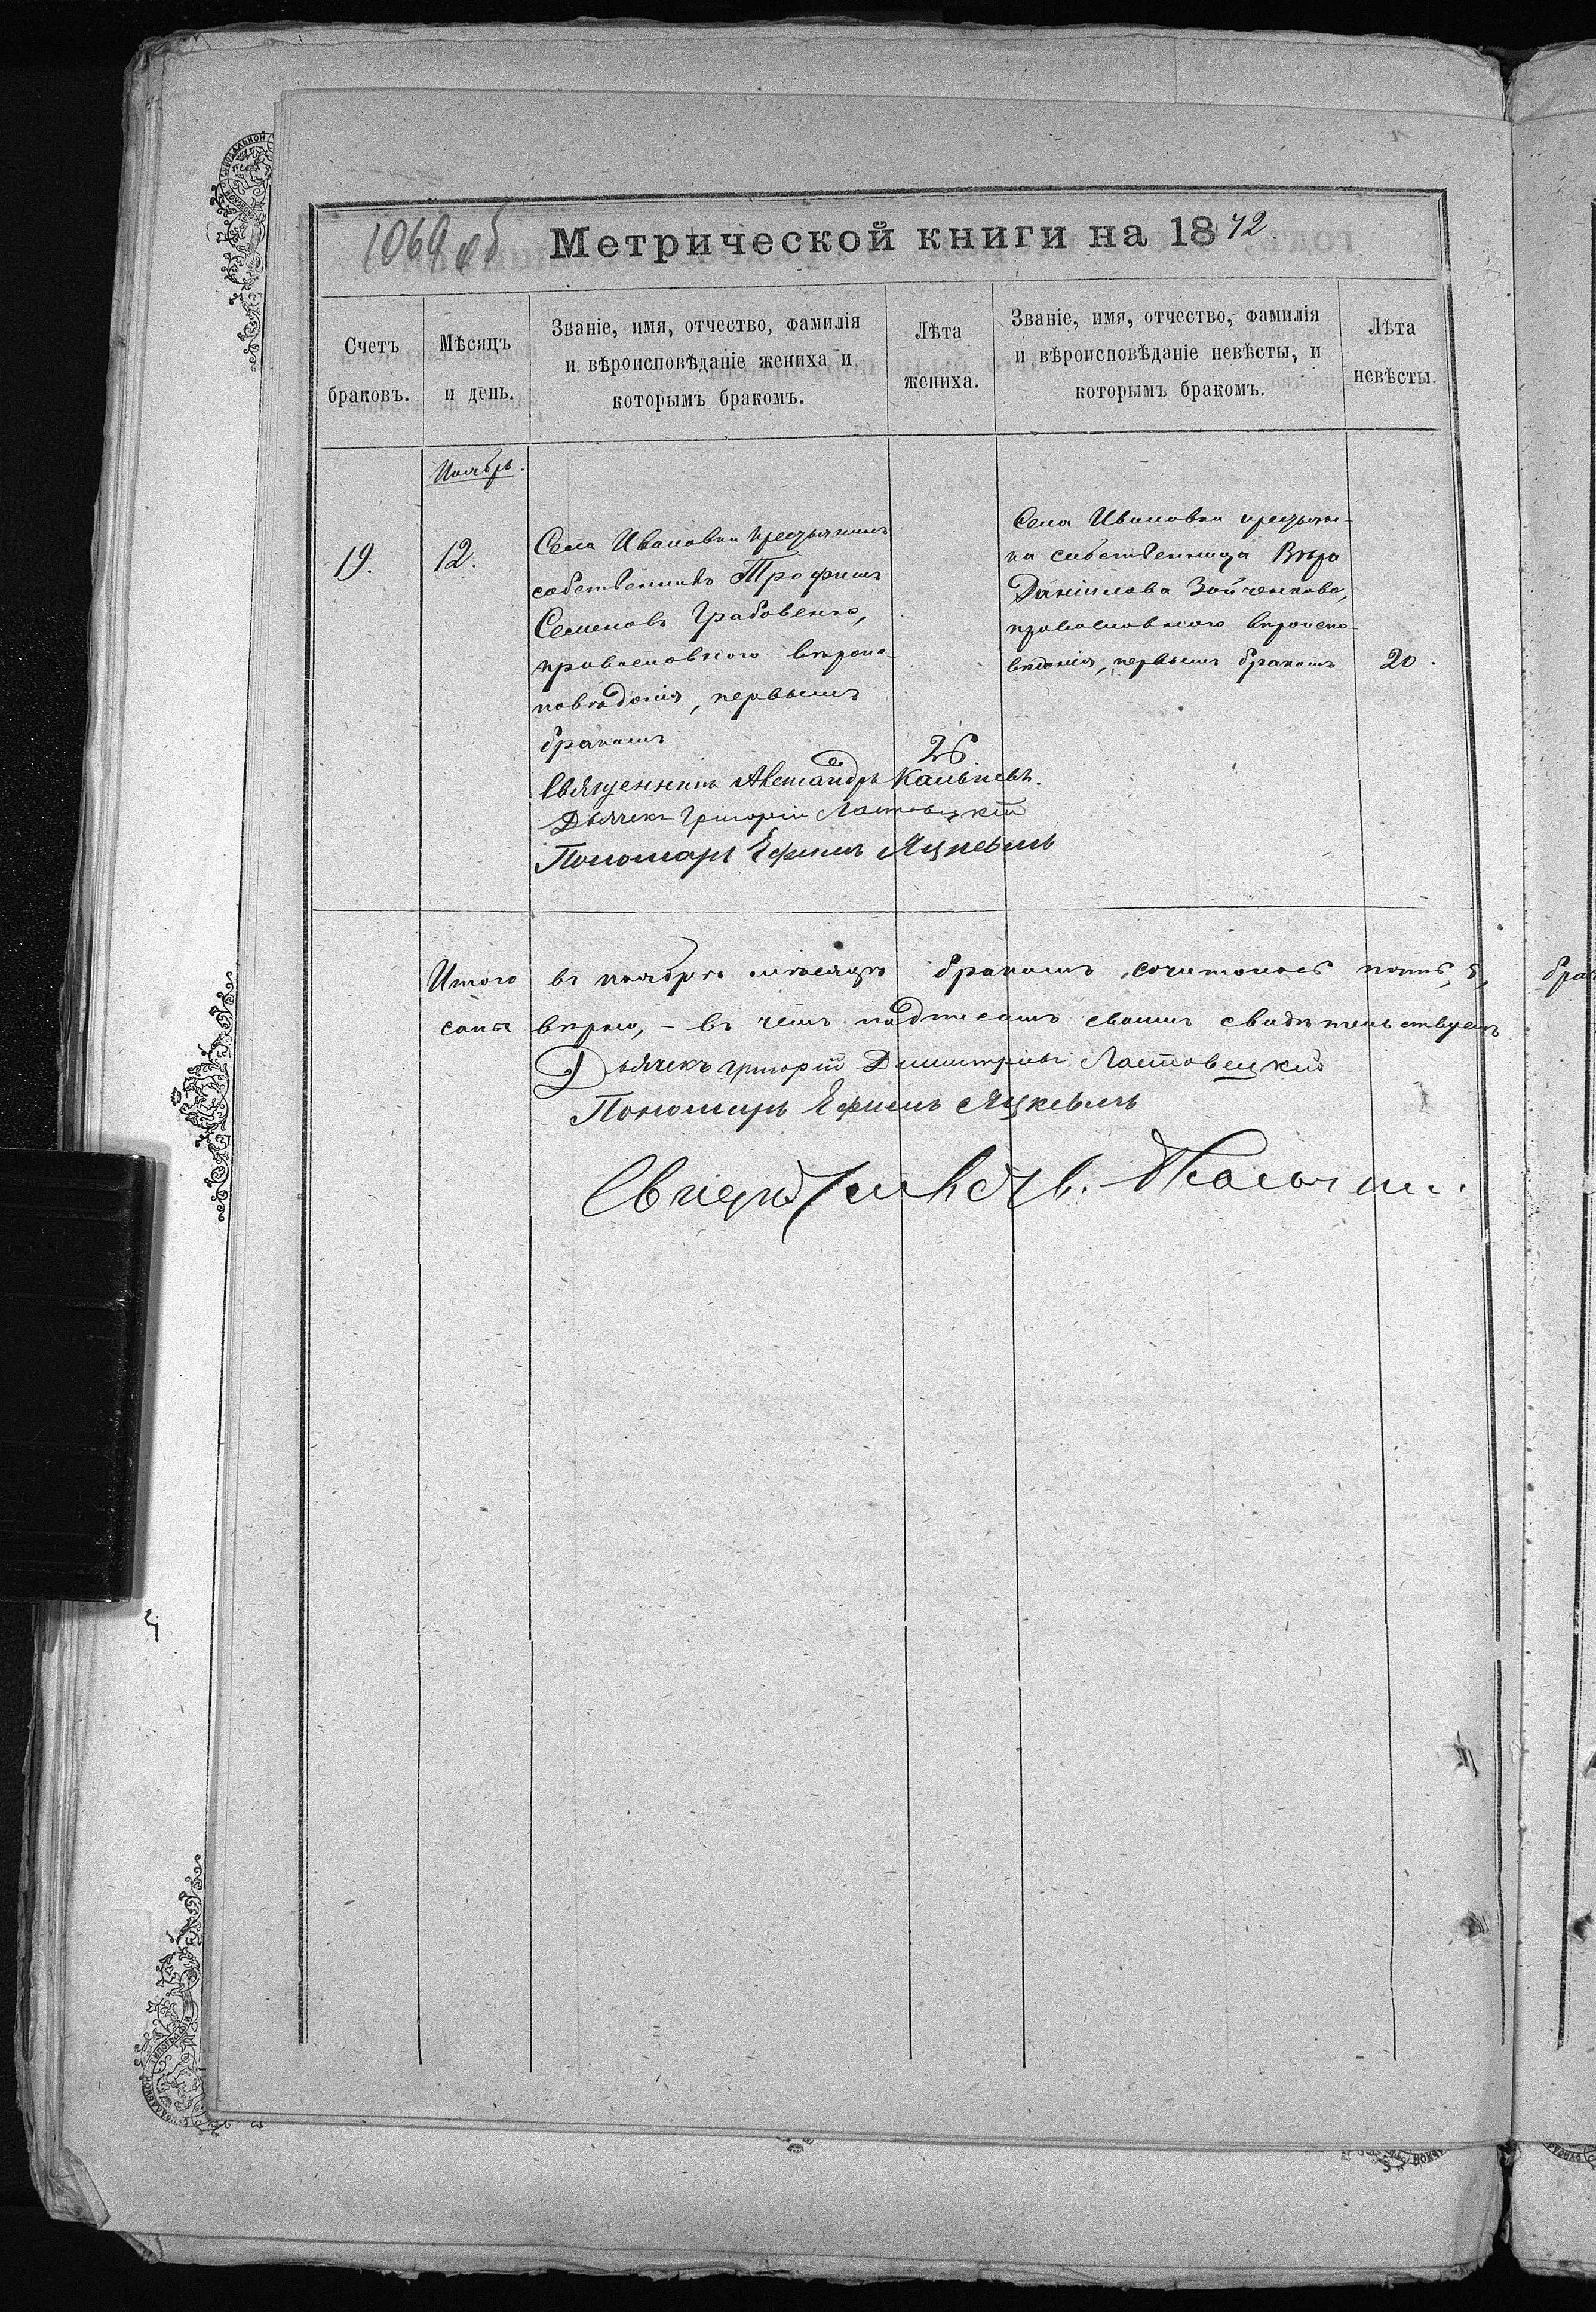 1069 об
Метрической книги на 1872
Счетъ браковъ.
Мѣсяцъ и день.
Званіе, имя, отчество, фамилія
и вѣроисповѣданіе жениха и
которымъ бракомъ.
Лѣта жениха.
Званіе, имя, отчество, фамилія
и вѣроисповѣданіе невѣсты, и
которымъ бракомъ.
Лѣта невѣсты.
Ноябрь.
19.
12.
Села Ивановки крестьянинъ
собственникъ Трофимъ
Семеновъ Грабовенко,
православного вѣроис-
повѣданія, первымъ
бракомъ
26
Села Ивановки крестьян-
ка собственница Вѣра
Даніилова Зойченкова,
православного вѣроиспо-
вѣданія, первымъ бракомъ
20.
Священникъ Александръ
Дьячекъ Григорій Ластовецкій
Пономарь Ефимъ Яцкевичъ
Итого въ ноябрѣ мѣсяцѣ бракомъ сочиталось пять, 5,
вѣрно, - въ чемъ подписомъ своимъ свидѣтельствуемъ
Дьячекъ Григорій Димитріевъ Ластовецкій
Пономарь Ефимъ Яцкевичъ